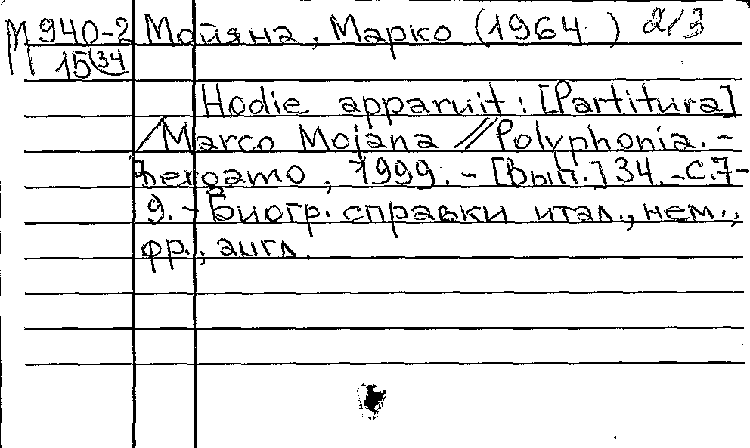 М 940-2 Мойяна, Марко (1964 ) 2/3
15(34
Hodie apparuit: [Partitura]
/Marco Mojana //Polyphonia.-
Bergamo, 1999.-[Вып.]34.-С.7-
9.-Биогр. справки итал., нем.,
фр., англ.